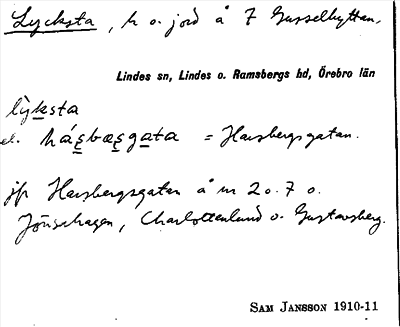 Lycksta, h o. jord å 7 Gusselhyttan,
Lindes sn, Lindes o. Ramsbergs hd, Örebro län
lỳksta
el. háṣbæṣgata = Havsbergsgatan.
jfr Havsbergsgatan å nr 2 o. 7 o.
Jönshagen, Charlottenlund o. Gustavsberg.
SAM JANSSON 1910-11